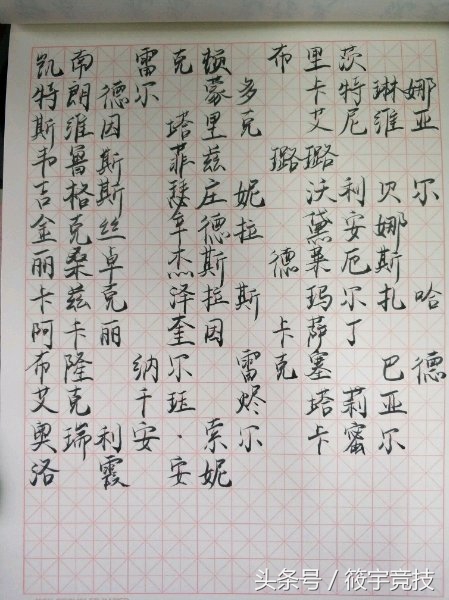 凯南 雷克顿 布里茨
特朗德尔 蒙多 卡特琳娜
斯维因 塔里克 艾尼维亚
韦鲁斯 菲兹 璐璐
吉格斯 瑟庄妮 沃利贝尔
金克丝 辛德拉 黛安娜
丽桑卓 杰斯 德莱厄斯
卡兹克 泽拉斯 玛尔扎哈
阿卡丽 奎因 卡萨丁
布隆 纳尔 雷克塞 巴德
艾克 千珏 烬 塔莉亚
奥瑞利安·索尔 卡蜜尔
洛 霞 安妮
头条号 / 筱宇竞技